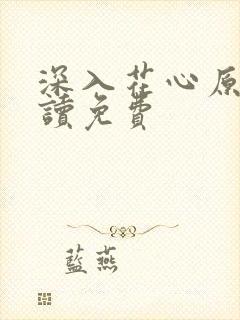 深入花心原
讀免費
藍燕